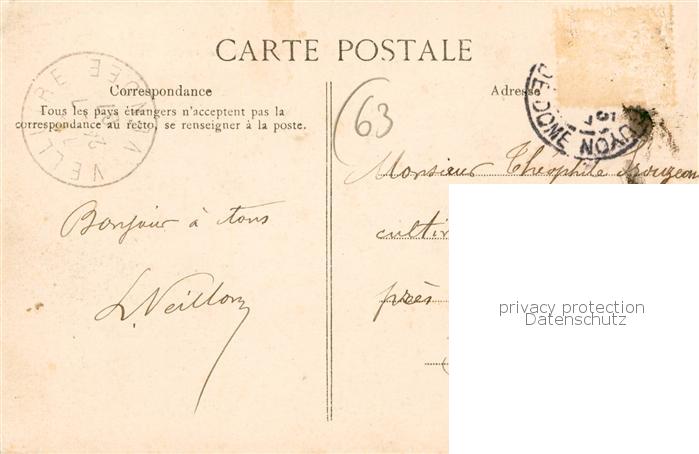 CARTE POSTALE
Correspondance
Tous les pays étrangers n'acceptent pas la
correspondance au recto, se renseigner à la poste.
Adresse
63
Monsieur Théophile
cultiv
près
Bonjour à tous
L. Veillon
privacy protection
Datenschutz